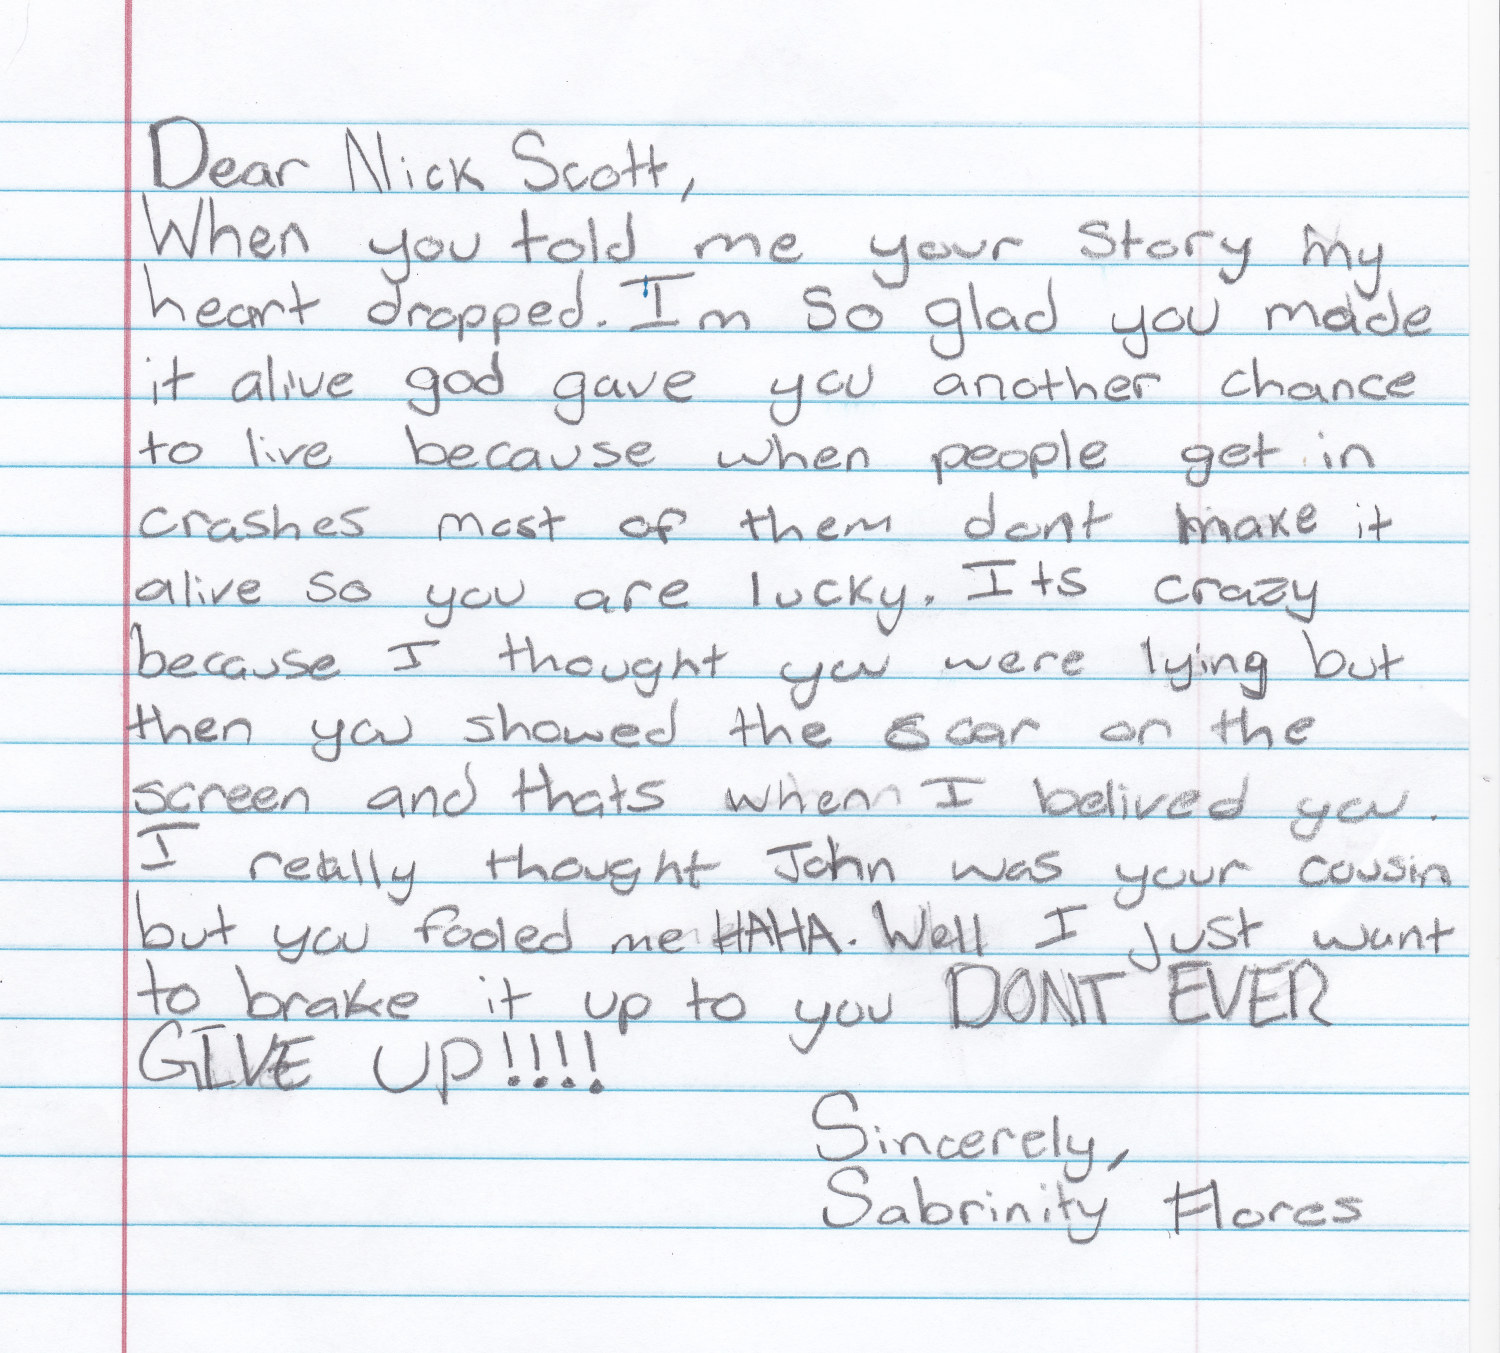 Dear Nick Scott,
When you told me your Story my
heart dropped. Im so glad you made
it alive god gave you another chance
to live because when people get in
crashes most of them dont make it
alive so you are lucky. Its crazy
because I thought you were lying but
then you showed the scar on the
screen and thats when I belived you.
I really thought John was your cousin
but you fooled me HAHA. Well I just want
to brake it up to you DONT EVER
GIVE UP!!!!
Sincerely,
Sabrinity Flores